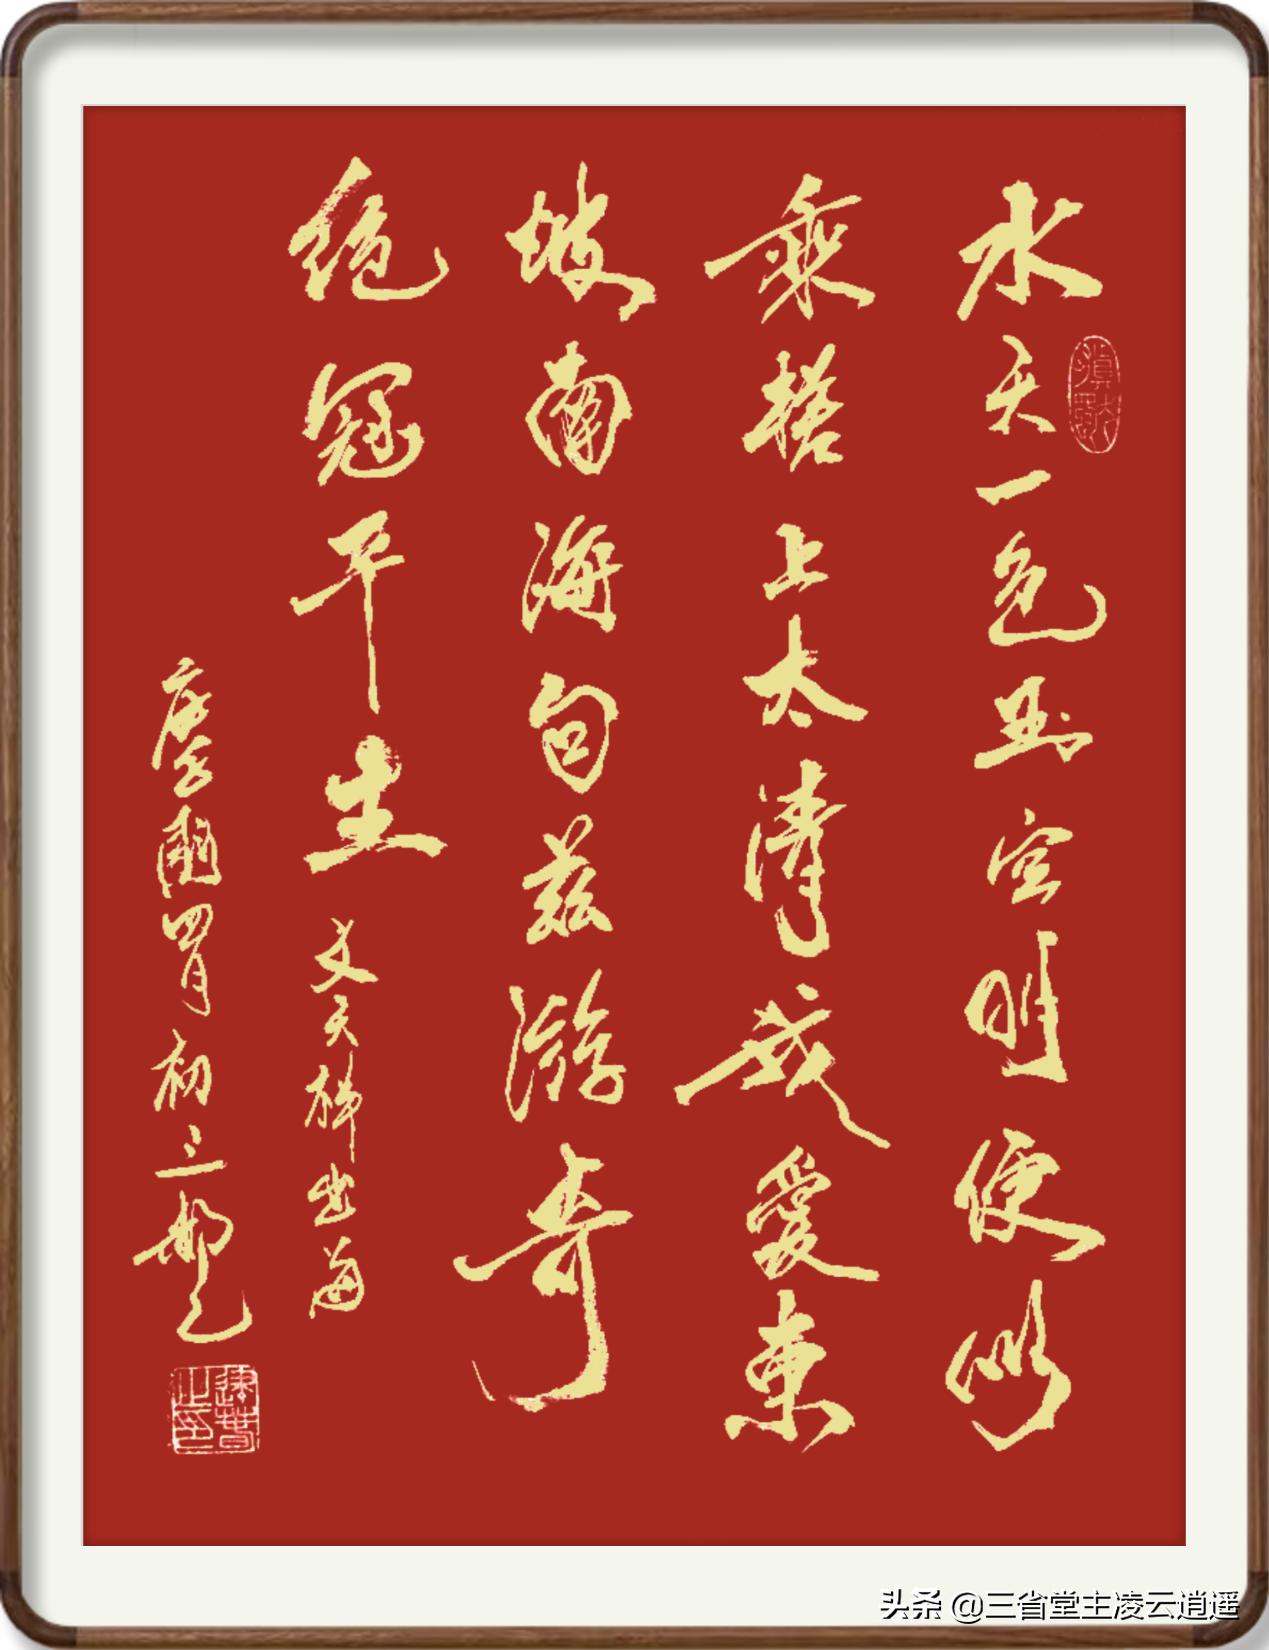 水天一色玉空明便似
乘槎上太清我愛東
坡南海句兹游奇
絶冠平生 文天祥出海
四月初三
头条 @三省堂主凌云逍遥